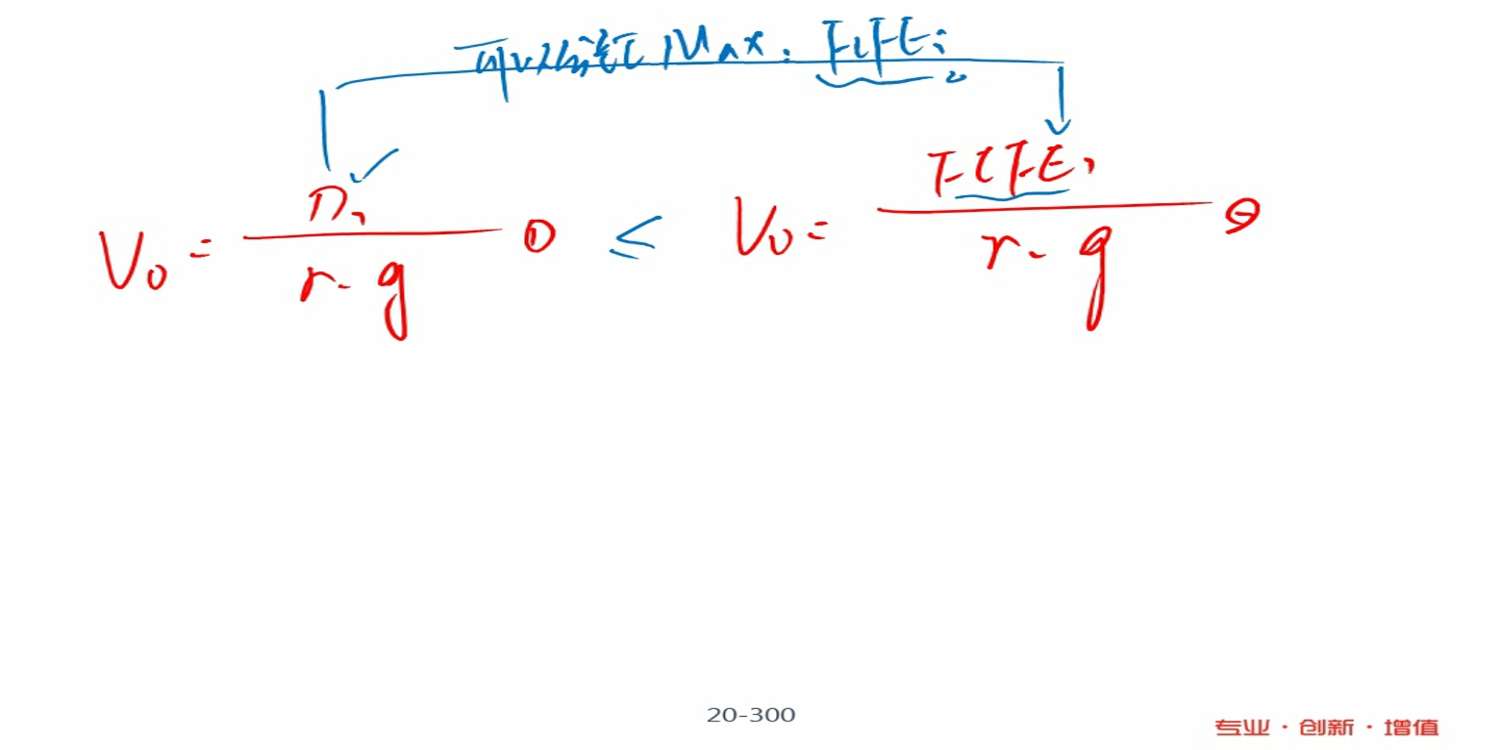 可以分红 Max: FCFE;
V₀ = D₁ / (r - g) ① ≤ V₀ = FCFE₁ / (r - g) ②
20-300
专业·创新·增值